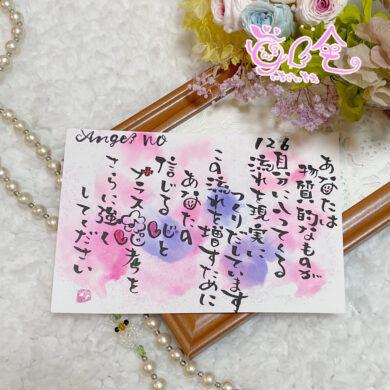 Angel no
126
あなたは
物質的なものが
自分に入ってくる
流れを現実に
つくりだしています
この流れを増すために
あなたの
信じる心と
プラス思考を
さらに強く
してください